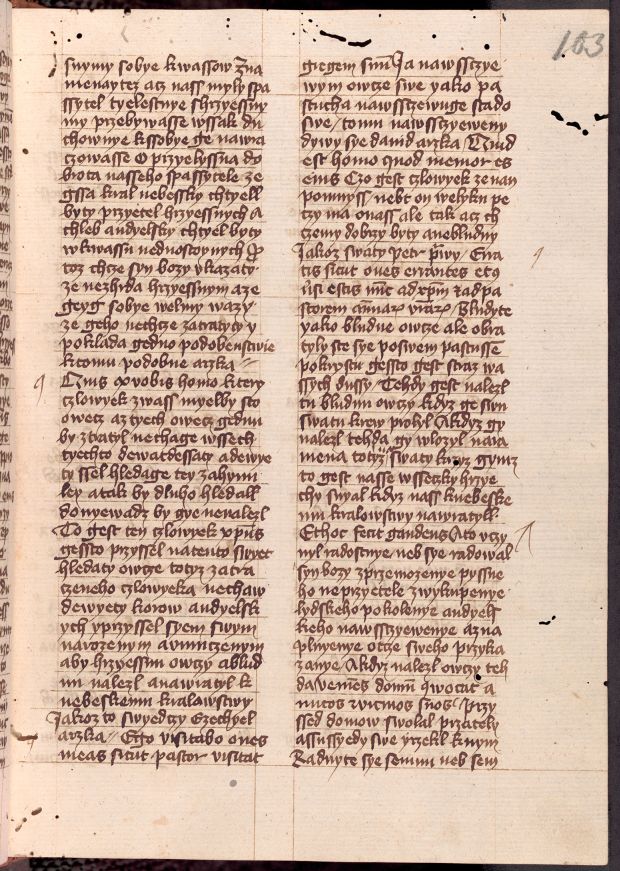 103
swymy sobye kwassow zna
menay tez acz nass myly spa
ssytel tyelestnye shrzyessny
my przebywasse wssak du
chownye kssobye ge nawra
czowasse O przyelyssna do
brota nasseho spassytele ze
gssa kral nebessky chtyell
byty przyetel hrzyessnych A
chleb andyelsky chtyel byty
wkwassu nednostoynych
toz chcze syn bozy vkazaty
ze nezhrda hrzyessnym aze
geyg sobye welmy wazy
ze geho nechcze zatratyty y
poklada gedno podobenstwie
ktomu podobne arzka
Quis ex vobis homo ktery
czlowyek zwass myelby sto
owecz aztyech owecz gednu
by ztratyl nechage wssech
tyechto dewatdessaty adewye
ty ssel hledage tey zahynu
ley atak by dluho hledall
donyewadz by gye nenalezl
To gest ten czlowyek xpus
gessto przyssel natento swyet
hledaty owcze totyz zatra
czeneho czlowyeka nechaw
dewyety korow andyelsk
ych yprzyssel syem swym
narozenym avmuczenym
aby hrzyessnu owczy ablud
nu nalezl anawratyl k
nebeskemu kralowstwy
Jakoz to swyedczy Ezechyel
arzka Ego visitabo oues
meas sicut pastor visitat
gregem suum Ja nawsstye
wym owcze swe yako pa
stucha nawsstyewuge stado
swe tomu nawsstyeweny
dywy sye dauid arzka Quid
est homo quod memor es
eius Czo gest czlowyek ze nan
pomnyss nebt on welyku pe
czy ma onass ale tak acz ch
czemy dobrzy byty anebludny
Jakoz swaty petr prwy Erra
tis sicut oues errantes et con
uersi estis nunc ad xpm z ad pa
storem animarum vestrarum Bludyte
yako bludne owcze ale obra
tyly ste sye poswem pastusse
pokrystu gessto gest straz wa
ssych dussy Tehdy gest nalezl
tu bludnu owczy kdyz ge swu
swatu krew prolyl Akdyz gy
nalezl tehda gy wlozyl nara
mena totyz swaty krzyz gymz
to gest nasse wsseczky hrzye
chy snyal kdyz nass knebeske
mu kralowstwy nawratyll
Et hoc fecit gaudens Ato vczy
nyl radostnye neb sye radowal
syn bozy zprzemozenye pyssne
ho neprzyetele zwykupenye
lydskeho pokolenye andyels
keho nawsstyewenye azna
plnyenye otcze sweho przyka
zanye Akdyz nalezl owczy teh
da veniens domum convocat a
micos vicinos suos Przy
ssed domow swolal przately
assussyedy swe yrzekl knym
Raduyte sye semnu neb sem